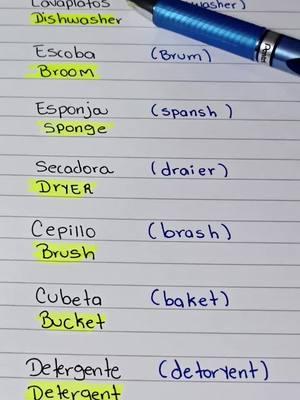 Lavaplatos washer)
Dishwasher
Escoba (Brum)
Broom
Esponja (spansh)
Sponge
Secadora (draier)
DRYER
Cepillo (brash)
Brush
Cubeta (baket)
Bucket
Detergente (detoryent)
Detergent